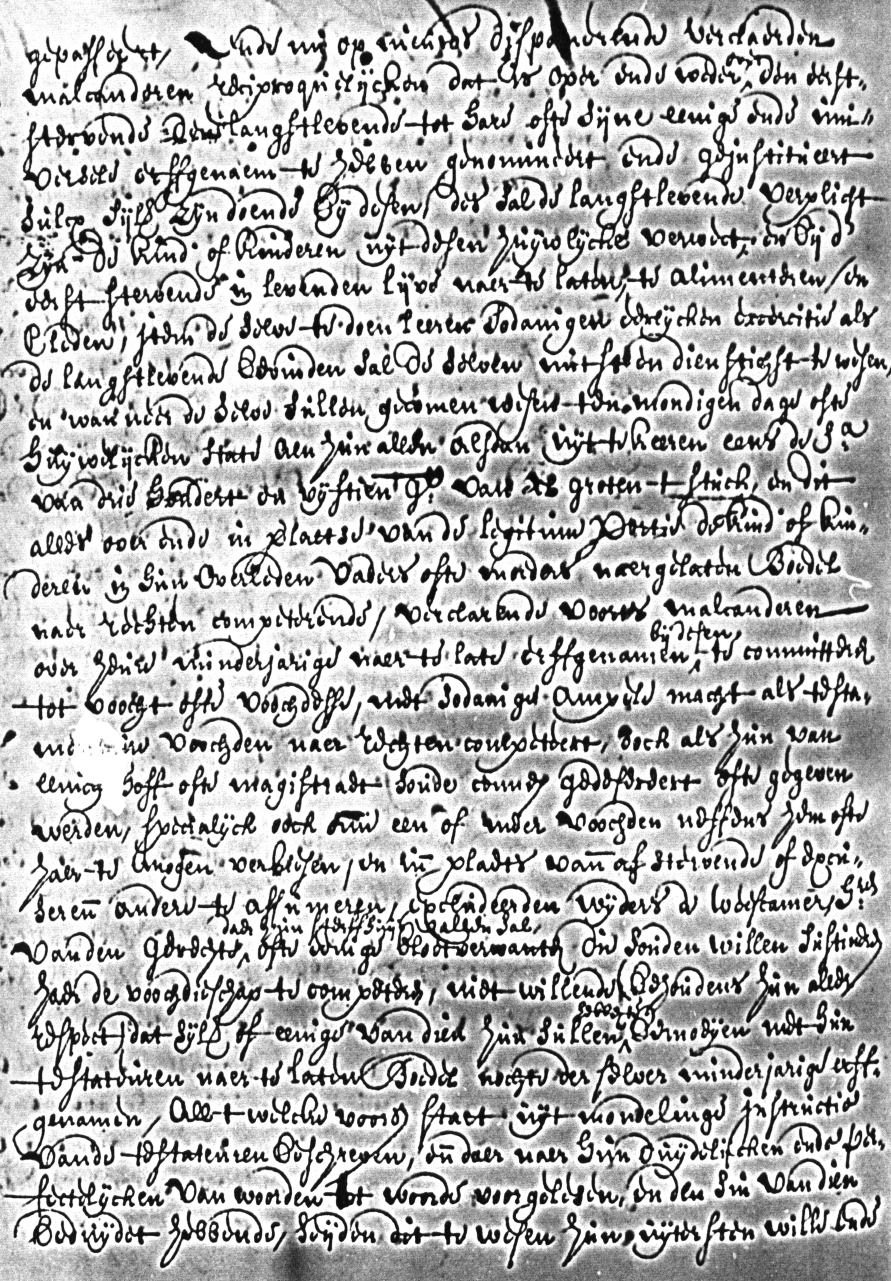 gepasseert, ende nu op nieuws disponerende verclaerden
malcanderen reciproquelijcken dat is over ende weder, den eerst
stervende den langhstlevende tot hare ofte sijne eenige ende uni-
versele erffgenaem te hebben genomineert ende geinstitueert
sulcx sijls sijn doende bij desen, des sal de langhstlevende verplicht
sijn de kind of kinderen uijt desen huijwelijcke verweckt, en bij d'
eerst stervende in levenden lijve naer te laten, te alimenteren, en
cleden, item de selve te doen leeren sodanigen eerlijcken exercitie als
de langhstlevende bevinden sal de selven nut ende dienstichst te wesen,
en wanneer de selve sullen gecomen wesen ten mondigen dage ofte
huijwelijcken state aen hun allen alsdan uijt te keeren eens de Sa
van drie hondert en vijftien gl. van xl groten t stuck, en dit
alles over ende in plaetse van de legitime portie de kind of kin-
deren in hun overleden vaders ofte moeders naergelaten boedel
naer rechten competerende, verclarende voorts malcanderen
over heure minderjarige naer te late erffgenamen bij desen te committeren
tot voocht ofte voochdesse, met sodanige ampele macht als testa-
voochden naer rechten competeert, oock als hun van
eenich hoff ofte magistraet soude connen gedefereert ofte gegeven
werden, specialijck oock om een of meer voochden neffens hem ofte
haer te mogen verkiesen, en in plaets van afstervende of excu-
seren andere te assumeren, excluderende wijders de weescamer, Hren
vanden gerechte, daer hun sterffhuijs vallen sal, ofte eenige bloetverwanten die souden willen sustineren
haer de voochdieschap te competeren, niet willende (behoudens hun aller
respect) dat sijls of eenige van dien hun sullen hebben te bemoeijen met hun
testateuren naer te laten boedel nochte der selver minderjarige erff-
genamen, All 't welcke voors staet uijt mondelinge instructie
vande testateuren beschreven, en daer naer hun duijdelijcken ende per-
fectelijcken van woorden tot woorde voorgelesen, en den sin van dien
beduijdet hebbende, seijden dit te wesen hun uijtersten wille ende